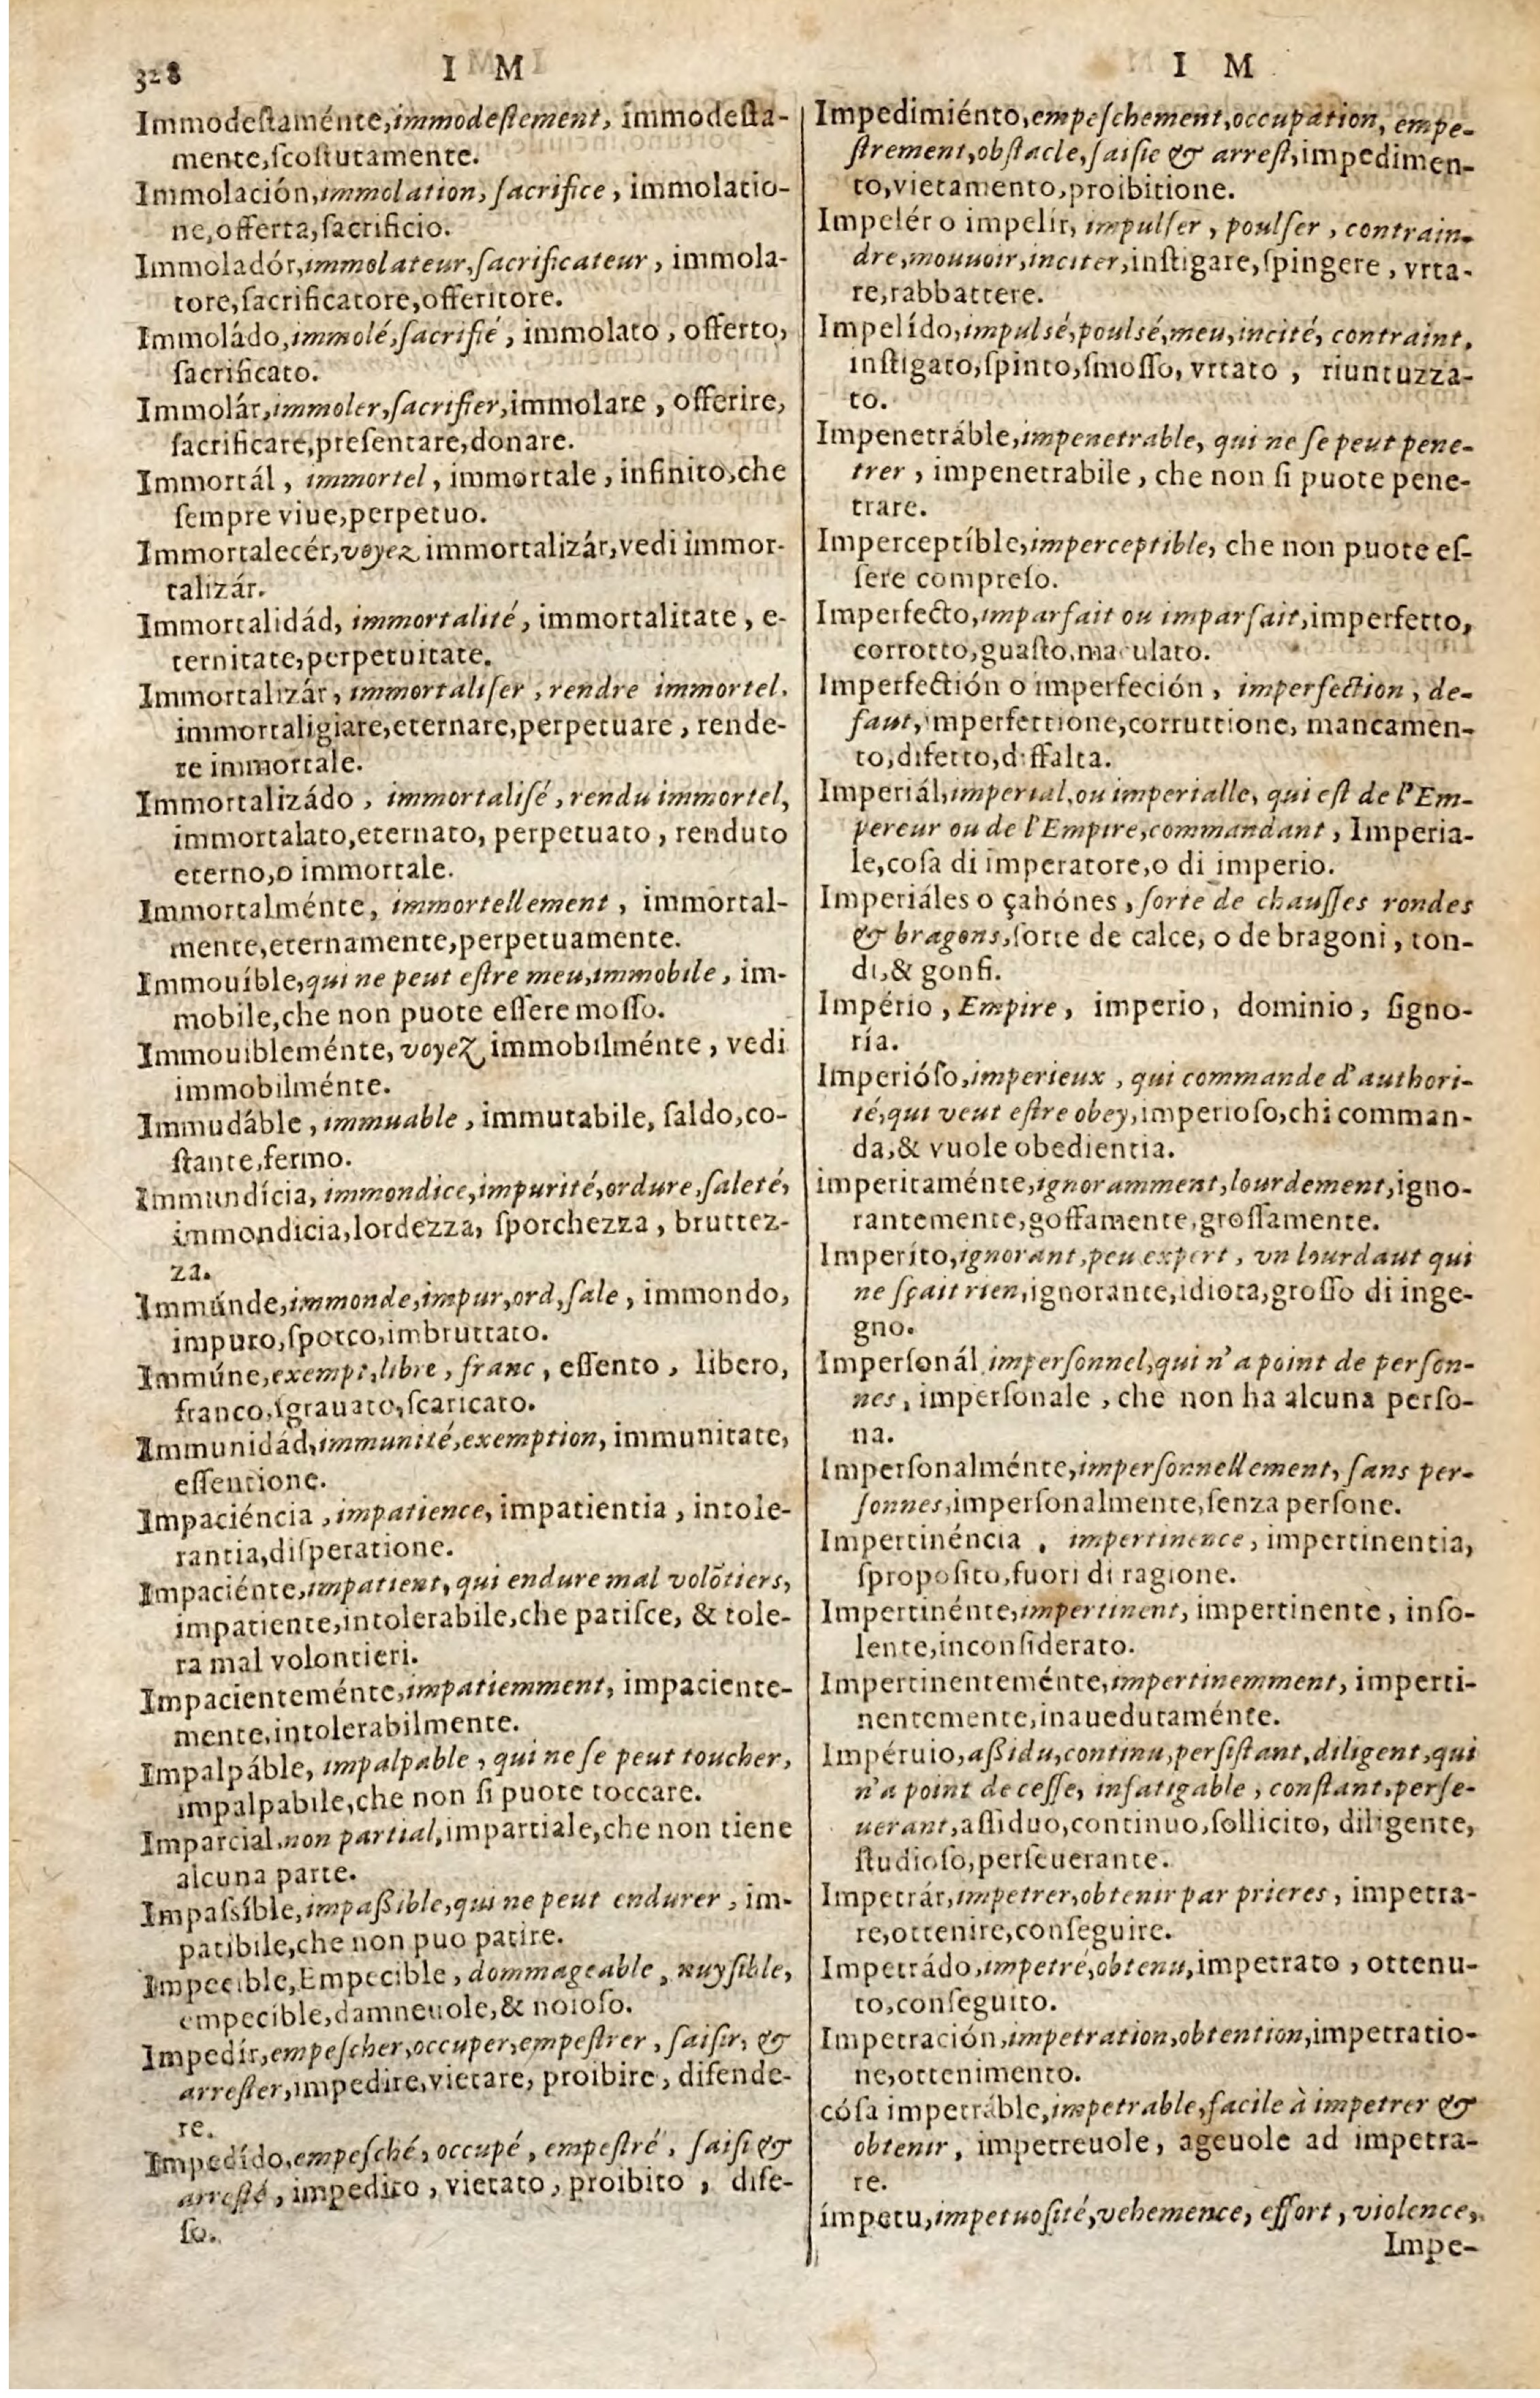 328
I M
Immodeſtaménte,immodeſtement, immodeſta-
mente,ſcoſtutamente.
Immolación,immolation, ſacrifice, immolatio-
ne,offerta,ſacrificio.
Immoladór,immolateur,ſacrificateur, immola-
tore,ſacrificatore,offeritore.
Immoládo,immolé,ſacrifié, immolato, offerto,
ſacrificato.
Immolár,immoler,ſacrifier,immolare, offerire,
ſacrificare,preſentare,donare.
Immortál, immortel, immortale, infinito,che
ſempre viue,perpetuo.
Immortalecér,voyez immortalizár,vedi immor-
talizár.
Immortalidád, immortalité, immortalitate, e-
ternitate,perpetuitate.
Immortalizár, immortaliſer, rendre immortel,
immortaligiare,eternare,perpetuare, rende-
re immortale.
Immortalizádo, immortaliſé, rendu immortel,
immortalato,eternato, perpetuato, renduto
eterno,o immortale.
Immortalménte, immortellement, immortal-
mente,eternamente,perpetuamente.
Immouíble,qui ne peut eſtre meu,immobile, im-
mobile,che non puote eſſere moſſo.
Immouibleménte, voyez immobilménte, vedi
immobilménte.
Immudáble, immuable, immutabile, ſaldo,co-
ſtante,fermo.
Immundícia, immondice,impurité,ordure,ſaleté,
immondicia,lordezza, ſporchezza, bruttez-
za.
Immúnde,immonde,impur,ord,ſale, immondo,
impuro,ſporco,imbruttato.
Immúne,exempt,libre, franc, eſſento, libero,
franco,ſgrauato,ſcaricato.
Immunidád,immunité,exemption, immunitate,
eſſentione.
Impaciéncia, impatience, impatientia, intole-
rantia,diſperatione.
Impaciénte,impatient, qui endure mal volõtiers,
impatiente,intolerabile,che patiſce, & tole-
ra mal volontieri.
Impacienteménte,impatiemment, impaciente-
mente,intolerabilmente.
Impalpáble, impalpable, qui ne ſe peut toucher,
impalpabile,che non ſi puote toccare.
Imparcial,non partial,impartiale,che non tiene
alcuna parte.
Impaſsíble,impaßible,qui ne peut endurer, im-
patibile,che non puo patire.
Impecible,Empecible, dommageable, nuyſible,
empecible,damneuole,& noioſo.
Impedír,empeſcher,occuper,empeſtrer, ſaiſir, &
arreſter,impedire,vietare, proibire, difende-
re.
Impedído,empeſché, occupé, empeſtré, ſaiſi &
arreſté, impedito, vietato, proibito, dife-
ſo.
I M
Impedimiénto,empeſchement,occupation, empe-
ſtrement,obſtacle,ſaiſie & arreſt,impedimen-
to,vietamento,proibitione.
Impelér o impelír, impulſer, poulſer, contrain-
dre,mouuoir,inciter,inſtigare,ſpingere, vrta-
re,rabbattere.
Impelído,impulsé,poulsé,meu,incité, contraint,
inſtigato,ſpinto,ſmoſſo, vrtato, riuntuzza-
to.
Impenetráble,impenetrable, qui ne ſe peut pene-
trer, impenetrabile, che non ſi puote pene-
trare.
Imperceptíble,imperceptible, che non puote eſ-
ſere compreſo.
Imperfecto,imparfait ou imparfait,imperfetto,
corrotto,guaſto,maculato.
Imperfectión o imperfeción, imperfection, de-
faut,imperfettione,corruttione, mancamen-
to,difetto,diffalta.
Imperiál,imperial,ou imperialle, qui eſt de l'Em-
pereur ou de l'Empire,commandant, Imperia-
le,coſa di imperatore,o di imperio.
Imperiáles o çahónes, ſorte de chauſſes rondes
& bragons,ſorte de calce, o de bragoni, ton-
di,& gonfi.
Império, Empire, imperio, dominio, ſigno-
ría.
Imperióſo,imperieux, qui commande d'authori-
té,qui veut eſtre obey,imperioſo,chi comman-
da,& vuole obedientia.
imperitaménte,ignoramment,lourdement,igno-
rantemente,goffamente,groſſamente.
Imperíto,ignorant,peu expert, vn lourdaut qui
ne ſçait rien,ignorante,idiota,groſſo di inge-
gno.
Imperſonál,imperſonnel,qui n'a point de perſon-
nes, imperſonale, che non ha alcuna perſo-
na.
Imperſonalménte,imperſonnellement, ſans per-
ſonnes,imperſonalmente,ſenza perſone.
Impertinéncia, impertinence, impertinentia,
ſpropoſito,fuori di ragione.
Impertinénte,impertinent, impertinente, inſo-
lente,inconſiderato.
Impertinenteménte,impertinemment, imperti-
nentemente,inauedutaménte.
Impéruio,aßidu,continu,perſiſtant,diligent,qui
n'a point de ceſſe, infatigable, conſtant,perſe-
uerant,aſſiduo,continuo,ſollicito, diligente,
ſtudioſo,perſeuerante.
Impetrár,impetrer,obtenir par prieres, impetra-
re,ottenire,conſeguire.
Impetrádo,impetré,obtenu,impetrato, ottenu-
to,conſeguito.
Impetración,impetration,obtention,impetratio-
ne,ottenimento.
cóſa impetráble,impetrable,facile à impetrer &
obtenir, impetreuole, ageuole ad impetra-
re.
ímpetu,impetuoſité,vehemence, effort, violence,
Impe-